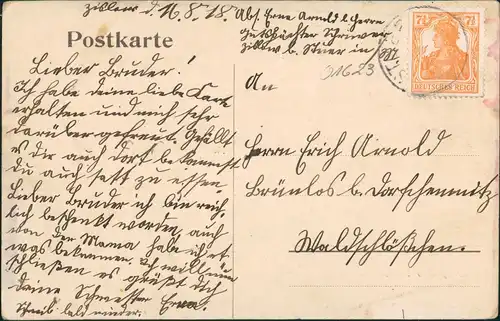 Zillow d. 16.8.18. Abs. Erna Arnold b. Herrn
Gutspächter Schriewer
Zillow b. in
Postkarte
31623
7½ 7½
DEUTSCHES REICH
Lieber Bruder!
Ich habe deine liebe Karte
erhalten und mich sehr
darüber gefreut. Gefällt
es dir auch dort bekommst
du auch satt zu essen
Lieber Bruder ich bin reich-
lich beschenkt worden, auch
von der Mama habe ich et
was bekommen. Ich will nun
schließen es grüßt dich
deine Schwester Erna.
Schreib bald wieder.
An
Herrn Erich Arnold
Brünlos b. Dorfchemnitz
Waldschlösschen.